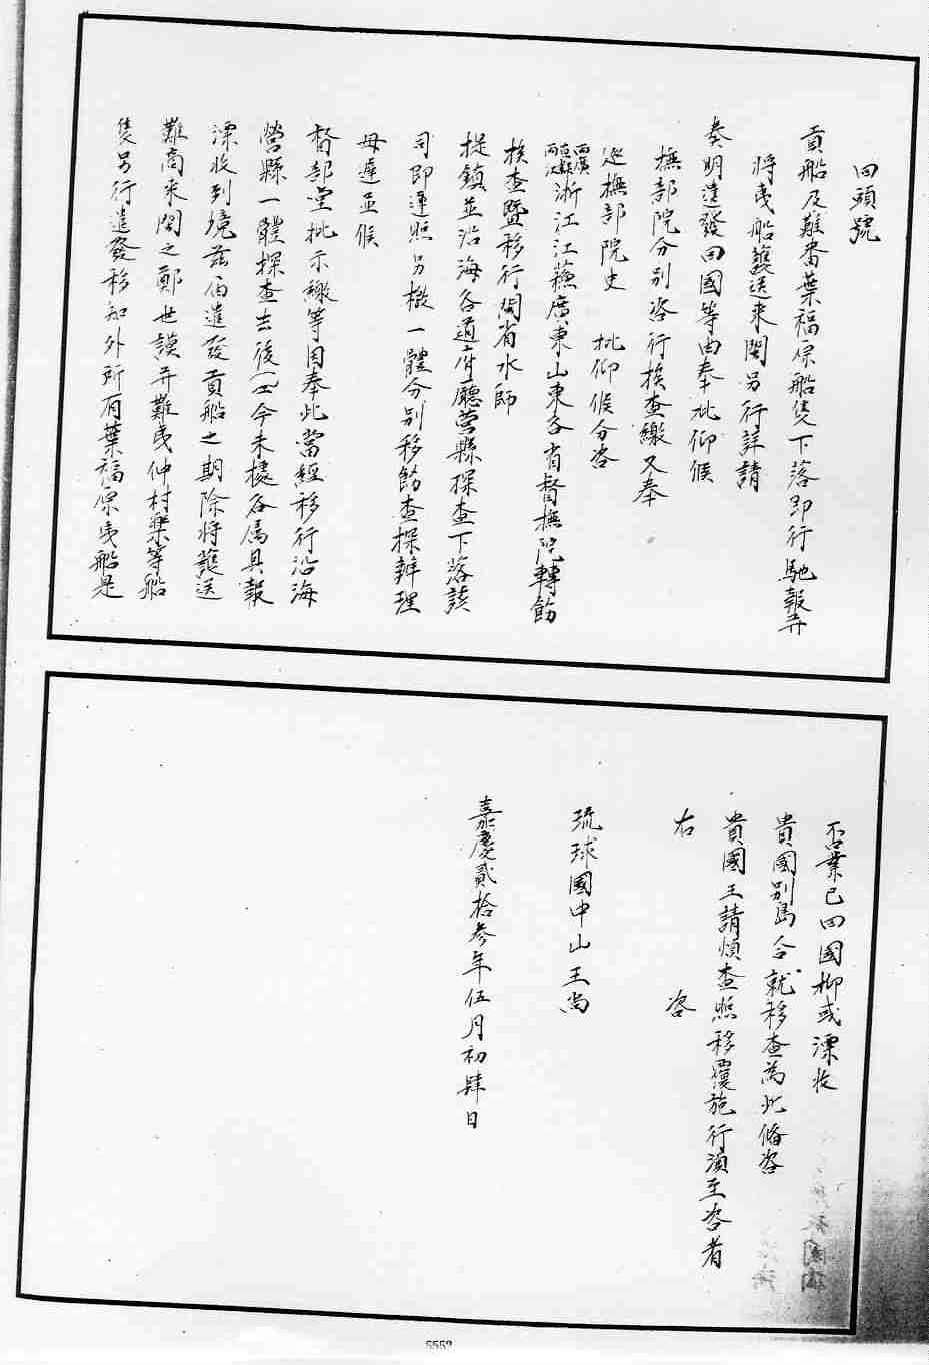 四頭號
貢船及難番葉福原船隻下落即行馳報并
將夷船護送來閩另行詳請
奏明遣發回國等由奉批仰候
撫部院分別咨行挨查繳又奉
巡撫部院史 批仰候分咨
兩廣直隸兩江浙江江蘇廣東山東各省督撫院轉飭
挨查暨移行閩省水師
提鎮並沿海各道府廳營縣探查下落該
司即遵照另檄一體分別移飭查探辦理
毋遲並候
督部堂批示繳等因奉此當經移行沿海
營縣一體探查去後迄今未據各屬具報
漂收到境茲值遣發貢船之期除將護送
難商來閩之鄭世謨并難夷仲村渠等船
隻另行遣發移知外所有葉福原夷船是
否業已回國抑或漂收
貴國別島合就移查為此備咨
貴國王請煩查照移覆施行須至咨者
右 咨
琉球國中山王尚
嘉慶貳拾參年伍月初肆日
5552